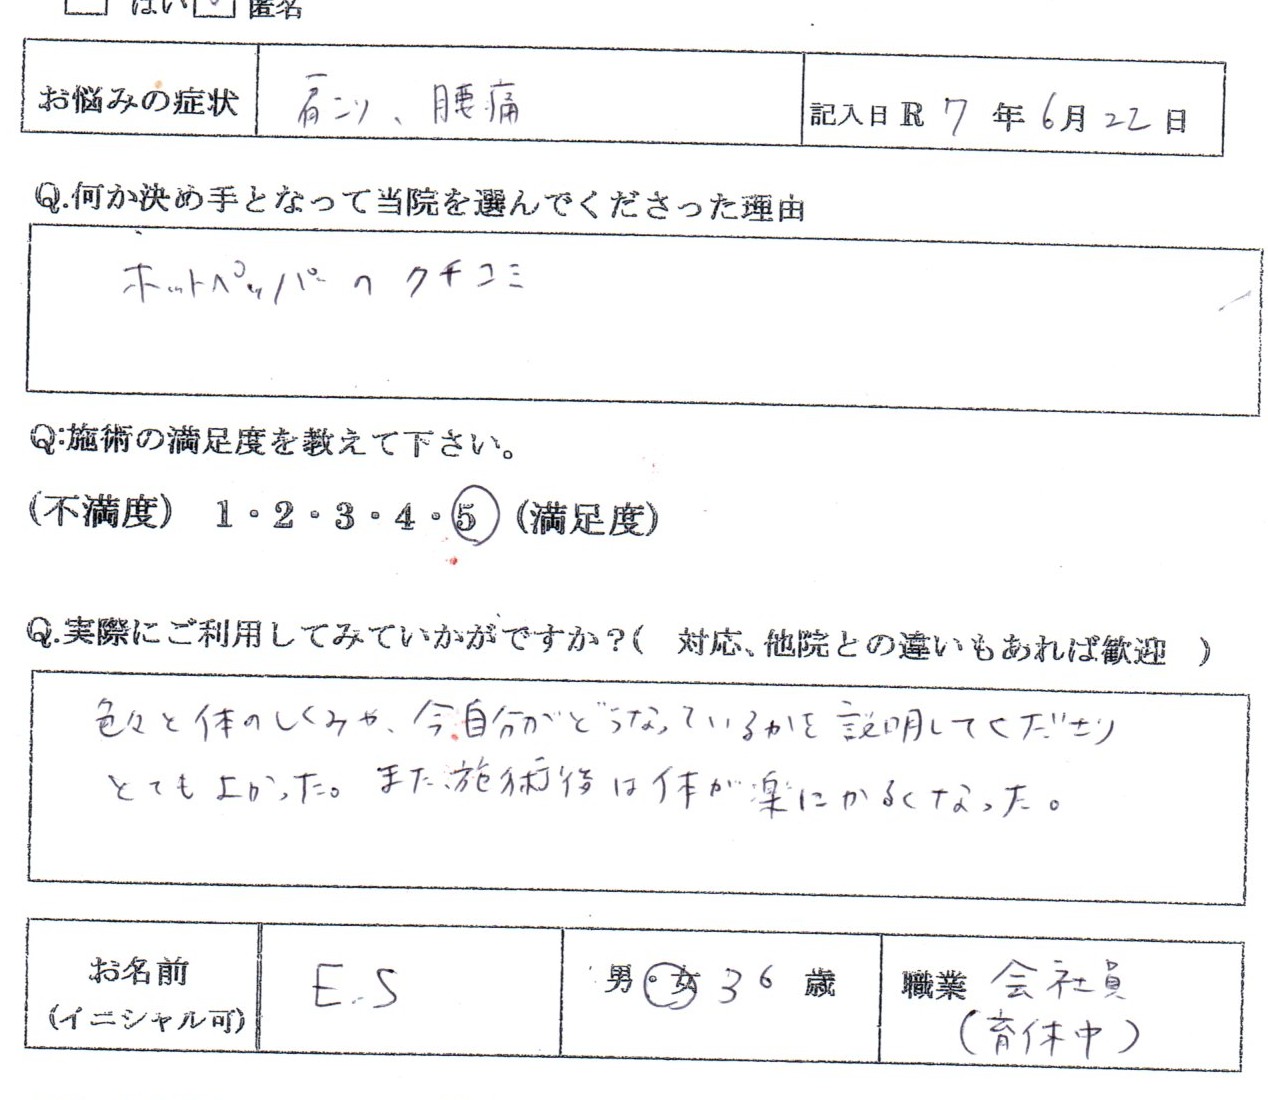 はい 匿名
お悩みの症状 肩コリ、腰痛 記入日 R 7 年 6月 22 日
Q.何か決め手となって当院を選んでくださった理由
ホットペッパーの クチコミ
Q:施術の満足度を教えて下さい。
(不満度) 1・2・3・4・5 (満足度)
Q.実際にご利用してみていかがですか?( 対応、他院との違いもあれば歓迎 )
色々と体のしくみや、今自分がどうなっているかを説明してくださり
とてもよかった。また、施術後は体が楽にかるくなった。
お名前 E.S 男・女 36 歳 職業 会社員
(イニシャル可) (育休中)